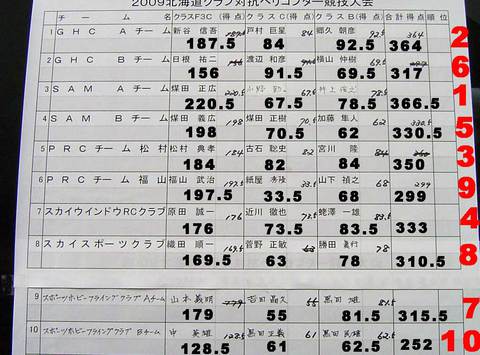 2009北海道クラブ対抗ヘリコプター競技大会
チーム名 クラスF3C(得点) クラスC(得点) クラスB(得点) 合計得点 順位
1 GHC Aチーム 新谷 信吾 戸村 巨星 84 郷久 朝彦 92.5 364
187.5 84 92.5 364 2
2 GHC Bチーム 日根 祐二 渡辺 和彦 横山 仲樹 69.5
156 91.5 69.5 317 6
3 SAM Aチーム 煤田 正広 220.5 67.5 78.5
220.5 67.5 78.5 366.5 1
4 SAM Bチーム 煤田 義広 198 煤田 正樹 70.5 加藤 隼人 62 330.5
198 70.5 62 330.5 5
5 PRCチーム 松村 松村 典孝 184 古石 聡史 82 宮川 隆 84
184 82 84 350 3
6 PRCチーム 福山 福山 武治 197.5 紙屋 33.5 山下 禎之 68 299
197.5 33.5 68 299 9
7 スカイウインドウRCクラブ 原田 誠一 176 近川 徹也 73.5 蛯澤 一雄 83.5
176 73.5 83.5 333 4
8 スカイスポーツクラブ 織田 順一 169.5 菅野 正敏 63 勝田 78
169.5 63 78 310.5 8
9 スポーツホビーフライングクラブ Aチーム 山本 義明 179 吉田 晶久 55 黒田 雄 81.5
179 55 81.5 315.5 7
10 スポーツホビーフライングクラブ Bチーム 中 英雄 128.5 黒田 正義 61 黒田 民雄 62.5
128.5 61 62.5 252 10